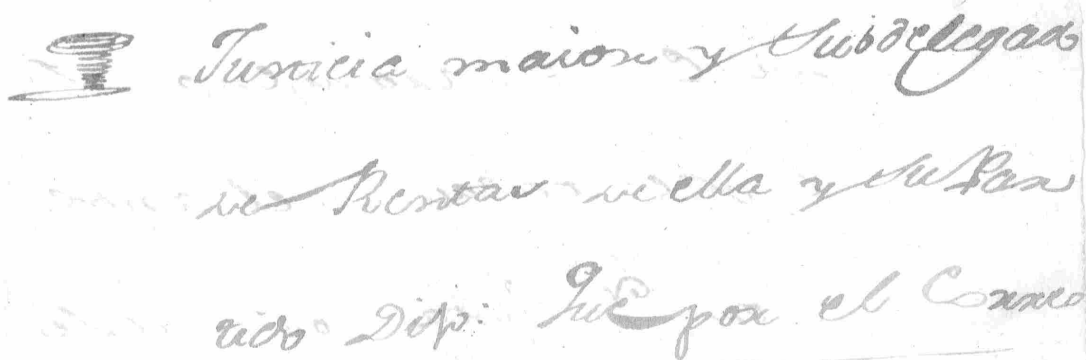 Justicia maior y Subdelegado
de Rentas de ella y su Par
tido Dijo: Que por el Correo